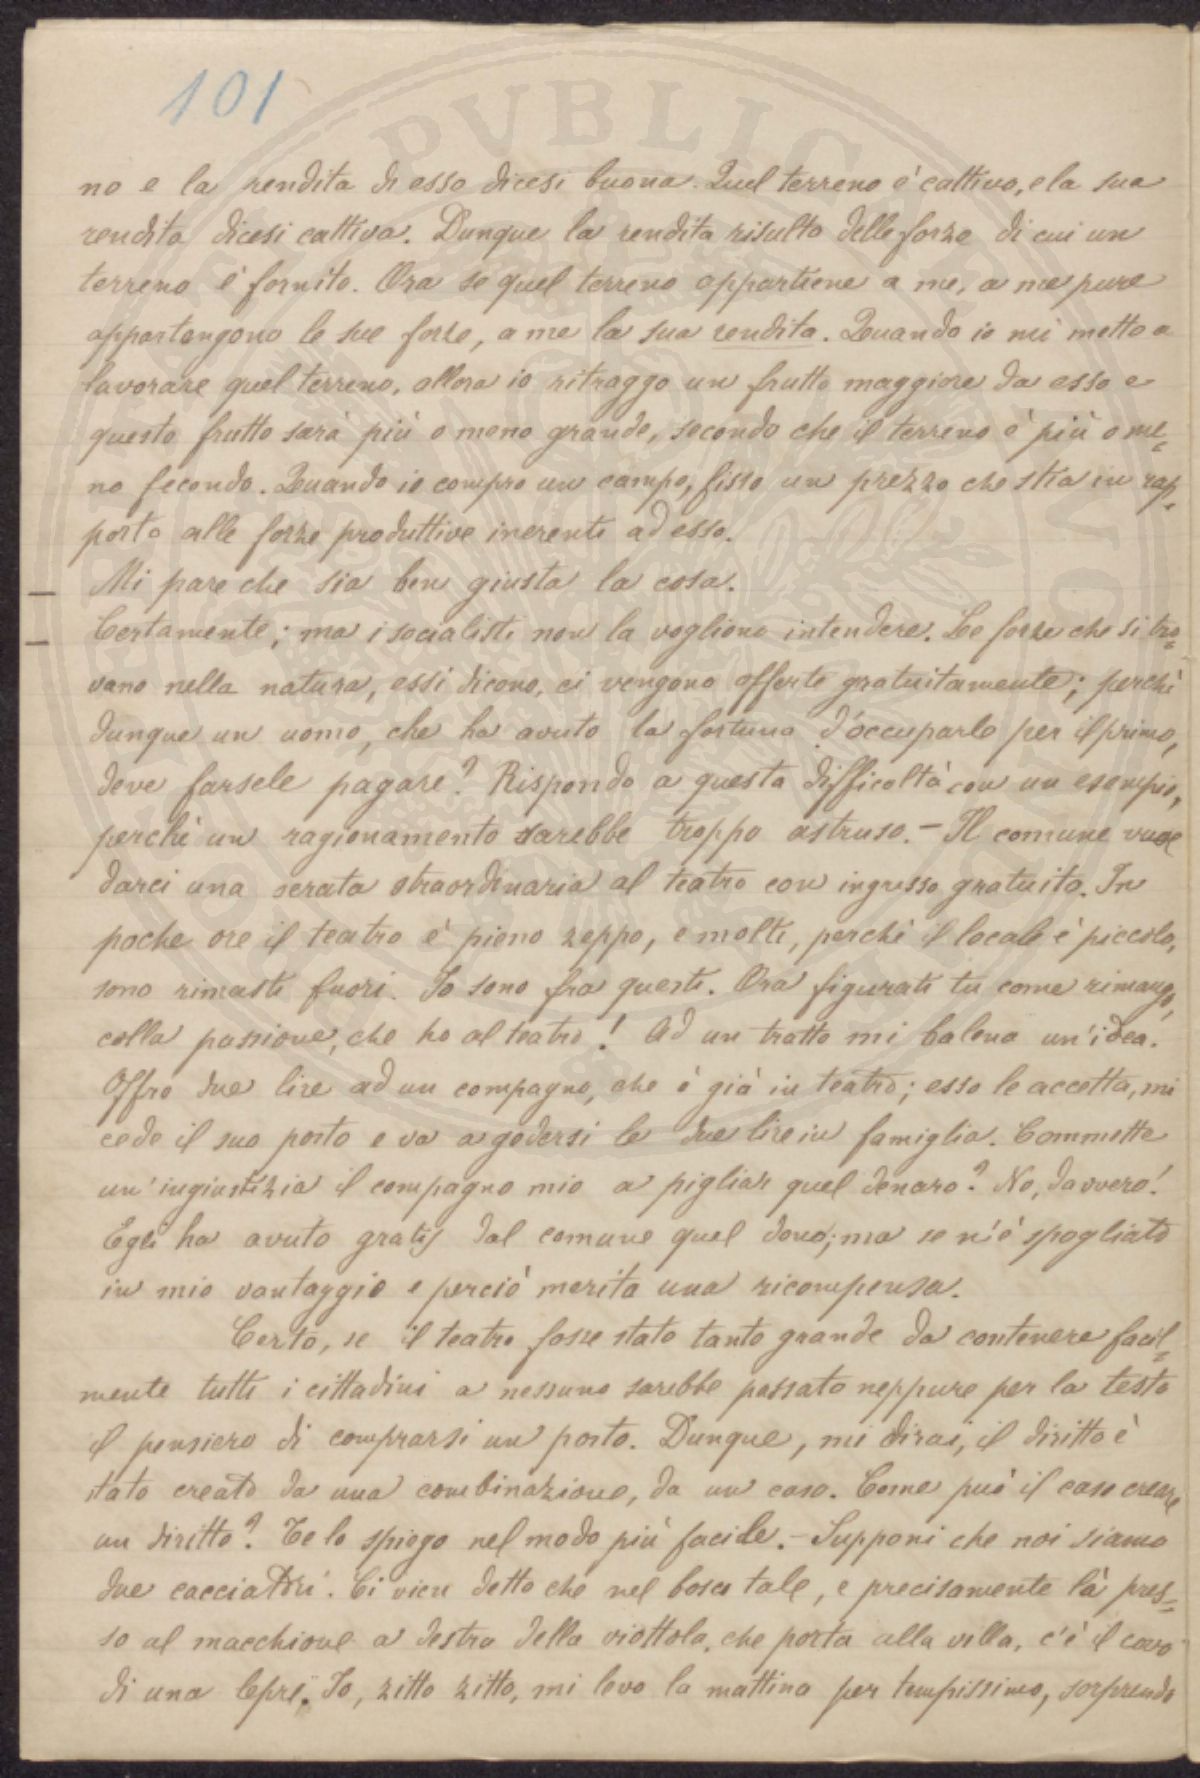 101
no e la rendita di esso dicesi buona. Quel terreno è cattivo, e la sua
rendita dicesi cattiva. Dunque la rendita risulta delle forze di cui un
terreno è fornito. Ora se quel terreno appartiene a me, a me pure
appartengono le sue forze, a me la sua rendita. Quando io mi metto a
lavorare quel terreno, allora io ritraggo un frutto maggiore da esso e
questo frutto sarà più o meno grande, secondo che il terreno è più o me=
no fecondo. Quando io compro un campo, fisso un prezzo che stia in rap=
porto alle forze produttive inerenti ad esso.
— Mi pare che sia ben giusta la cosa.
— Certamente; ma i socialisti non la vogliono intendere. Le forze che si tro=
vano nella natura, essi dicono, ci vengono offerte gratuitamente; perchè
dunque un uomo, che ha avuto la fortuna d'occuparle per il primo,
deve farsele pagare? Rispondo a questa difficoltà con un esempio,
perchè un ragionamento sarebbe troppo astruso. — Il comune vuol
darci una serata straordinaria al teatro con ingresso gratuito. In
poche ore il teatro è pieno zeppo, e molti, perchè il locale è piccolo,
sono rimasti fuori. Io sono fra questi. Ora figurati tu come rimango,
colla passione, che ho al teatro! Ad un tratto mi balena un'idea.
Offro due lire ad un compagno, che è già in teatro; esso le accetta, mi
cede il suo posto e va a godersi le due lire in famiglia. Commette
un'ingiustizia il compagno mio a pigliar quel denaro? No, davvero!
Egli ha avuto gratis dal comune quel dono; ma se n'è spogliato
in mio vantaggio e perciò merita una ricompensa.
Certo, se il teatro fosse stato tanto grande da contenere facil=
mente tutti i cittadini a nessuno sarebbe passato neppure per la testa
il pensiero di comprarsi un posto. Dunque, mi dirai, il diritto è
stato creato da una combinazione, da un caso. Come può il caso creare
un diritto? Te lo spiego nel modo più facile. — Supponi che noi siamo
due cacciatori. Ci vien detto che nel bosco tale, e precisamente là pres=
so al macchione a destra della viottola, che porta alla villa, c'è il covo
di una lepre. Io, zitto zitto, mi levo la mattina per tempissimo, sorprendo